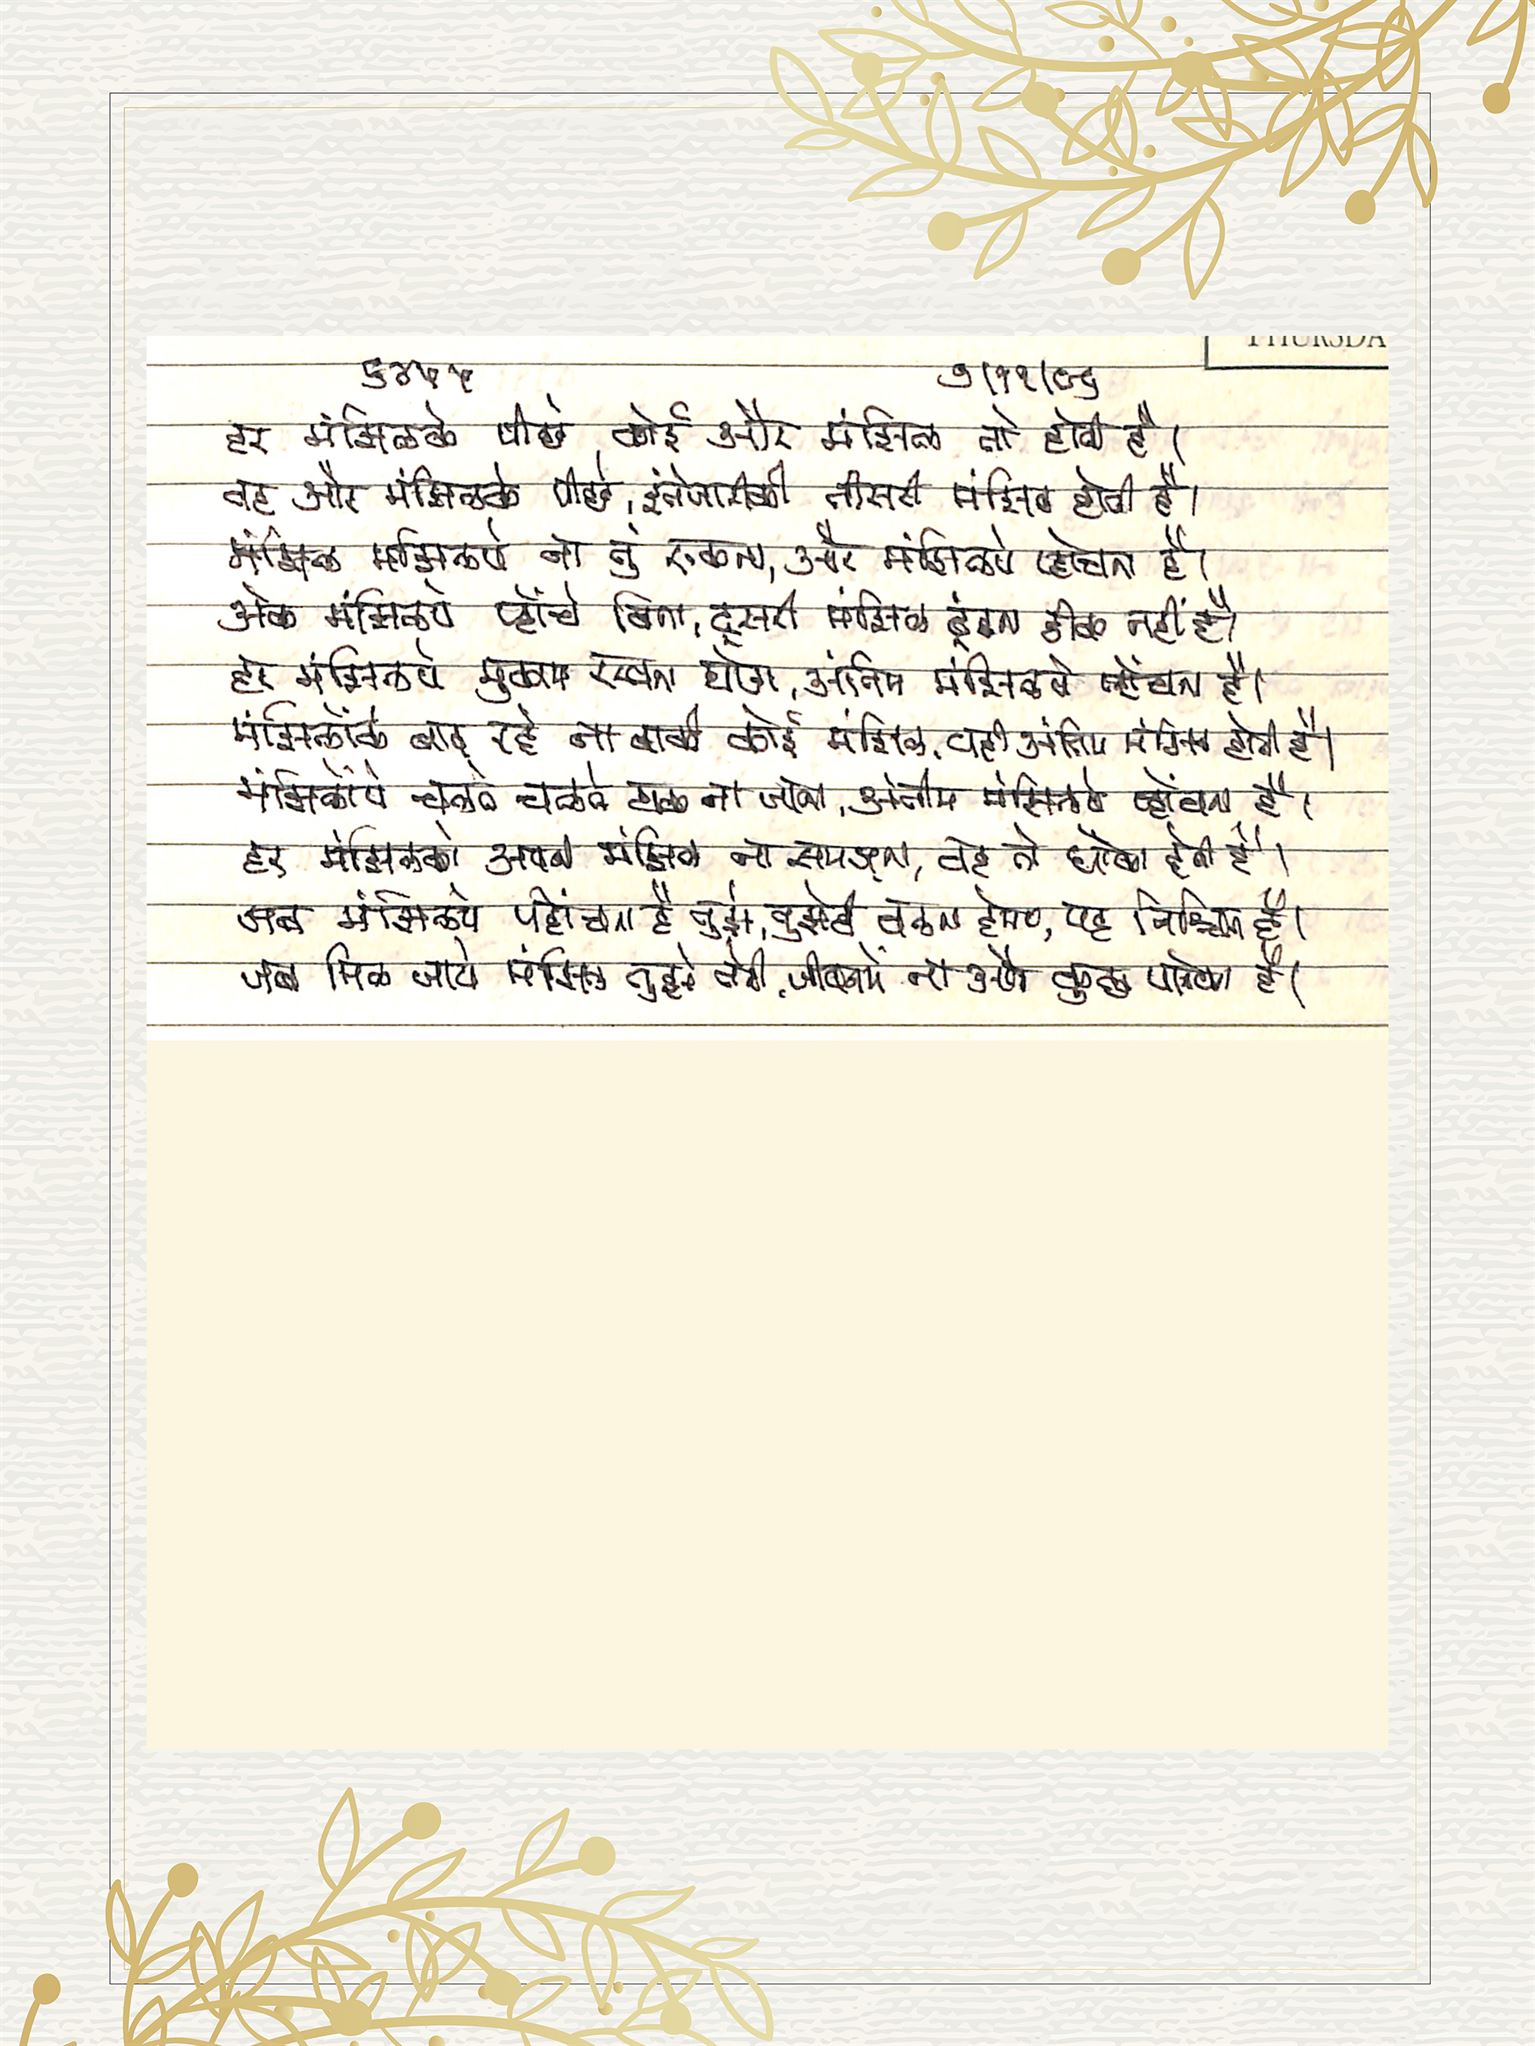 THURSDA
५४५५ ७/११/८६
हर मंझिलके पीछे कोई और मंझिल तो होती है।
वह और मंझिलके पीछे, इंतेजारीकी तीसरी मंझिल होती है।
मंझिल मंझिलपे ना तुं रुकना, और मंझिलपे पहोंचना है।
अेक मंझिलपे पहोंचे बिना, दूसरी मंझिल ढूंढना ठीक नहीं है।
हर मंझिलपे मुकाम रखना पडेगा, अंतिम मंझिलपे पहोंचना है।
मंझिलोंके बाद रहे ना बाकी कोई मंझिल, वही अंतिम मंझिल होती है।
मंझिलोंपे चलते चलते थक ना जाना, अंतीम मंझिलपे पहोंचना है।
हर मंझिलको अपना मंझिल ना समझना, वह तो धोका देती है।
जब मंझिलपे पहोंचना है तुझे, तुझेही चलना होगा, यह निश्चित है।
जब मिल जाये मंझिल तुझे तेरी, जीवनमें ना और कुछ पानेका है।